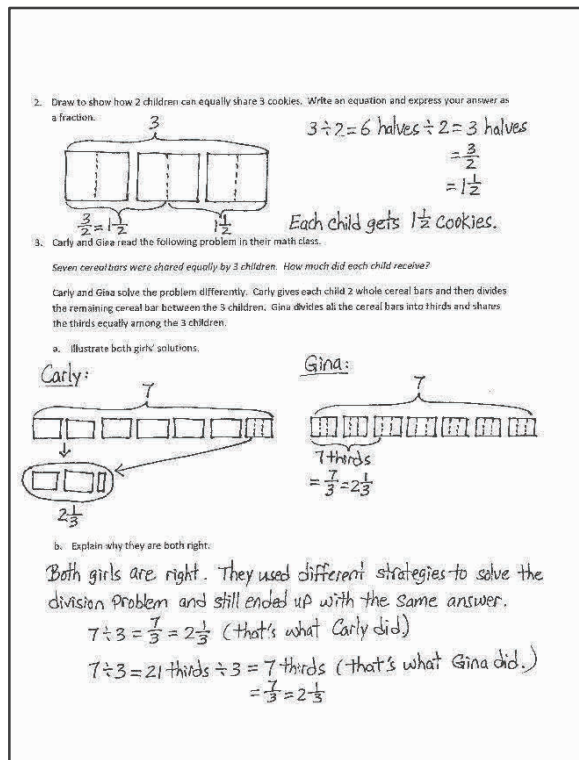 2. Draw to show how 2 children can equally share 3 cookies. Write an equation and express your answer as
a fraction.
3
3÷2=6 halves÷2=3 halves
=3/2
=1 1/2
3/2=1 1/2
1 1/2
Each child gets 1 1/2 cookies.
3. Carly and Gina read the following problem in their math class.
Seven cereal bars were shared equally by 3 children. How much did each child receive?
Carly and Gina solve the problem differently. Carly gives each child 2 whole cereal bars and then divides
the remaining cereal bar between the 3 children. Gina divides all the cereal bars into thirds and shares
the thirds equally among the 3 children.
a. Illustrate both girls' solutions.
Carly:
7
2 1/3
Gina:
7
7 thirds
=7/3=2 1/3
b. Explain why they are both right.
Both girls are right. They used different strategies to solve the
division problem and still ended up with the same answer.
7÷3=7/3=2 1/3 (that's what Carly did.)
7÷3=21 thirds÷3=7 thirds (that's what Gina did.)
=7/3=2 1/3